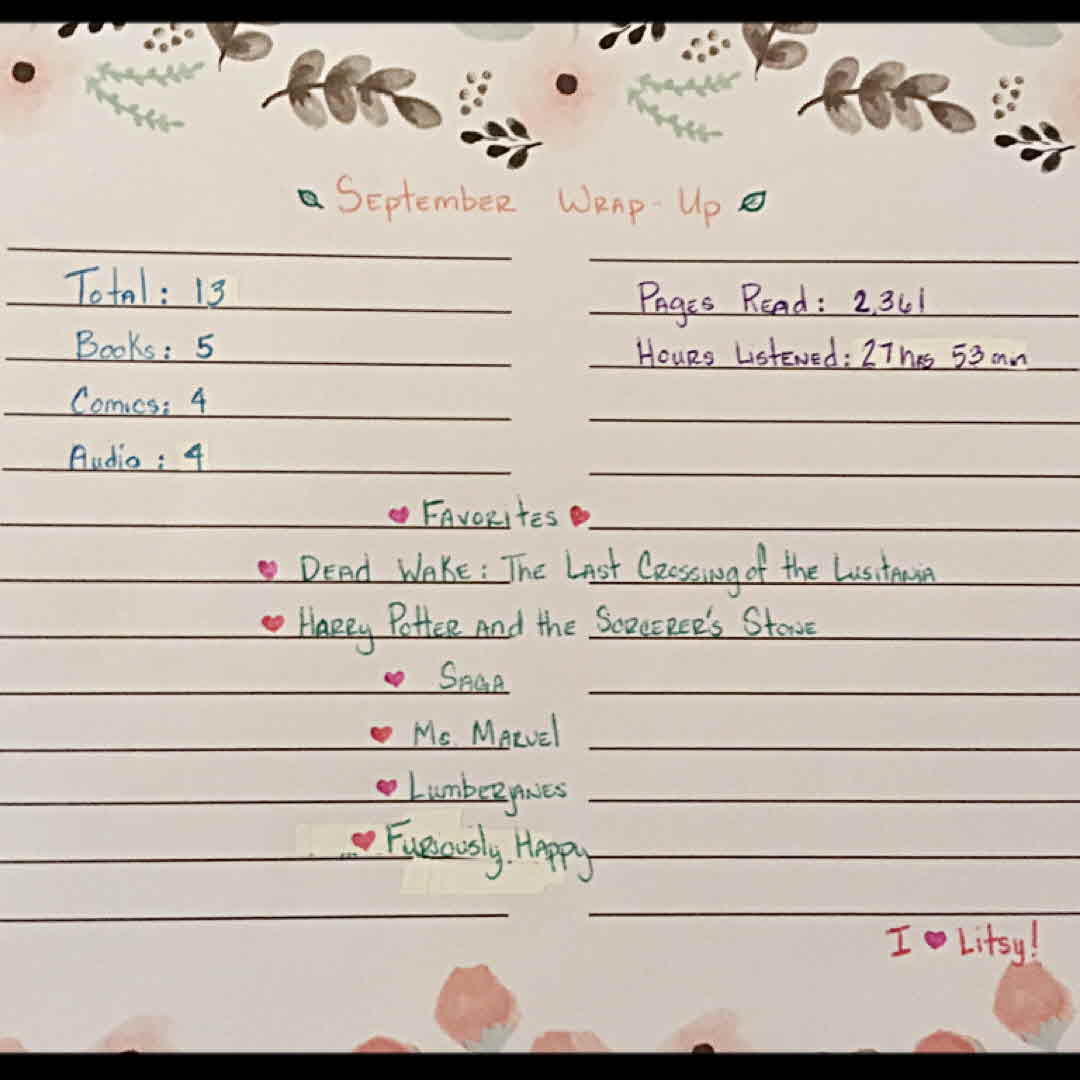 September Wrap-Up
Total: 13
Books: 5
Comics: 4
Audio: 4
Pages Read: 2,361
Hours Listened: 27 hrs 53 min
Favorites
Dead Wake: The Last Crossing of the Lusitania
Harry Potter and the Sorcerer's Stone
Saga
Ms. Marvel
Lumberjanes
Furiously Happy
I ♥ Litsy!